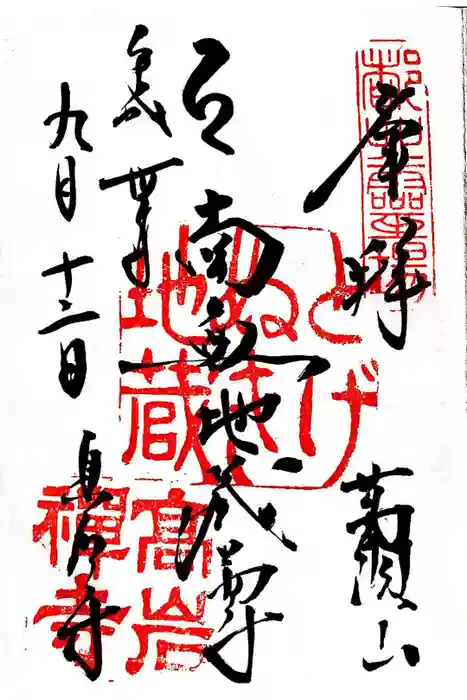 奉拝
萬頂山
とげ
ぬき
地蔵
南無地蔵尊
平成
九月十二日
高岩
禪寺
高岩寺